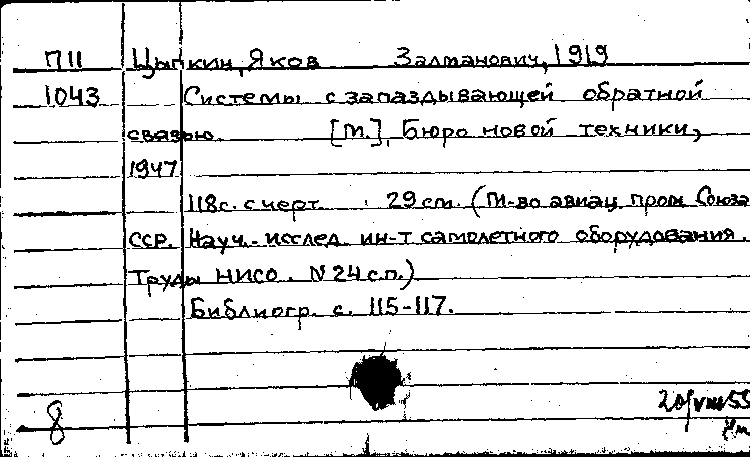 П11 Цыпкин, Яков Залманович, 1919
1043 Системы с запаздывающей обратной
связью [М.], Бюро новой техники,
1947
118с. с черт. 29 см. (М-во авиац. пром. Союза
ССР. Науч.-исслед. ин-т самолетного оборудования.
Труды НИСО. N 24 с.п.)
Библиогр. с. 115-117.
8 20/VIII 55